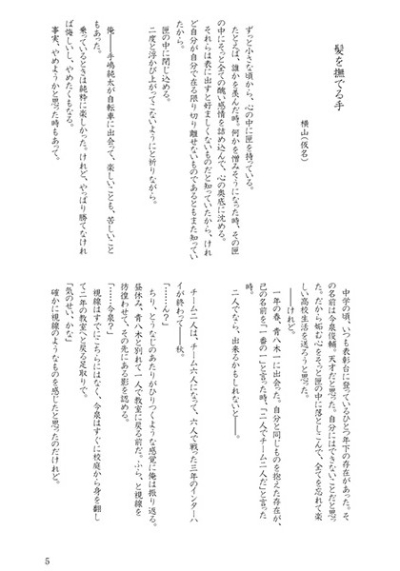 髪を撫でる手
横山(仮名)
ずっと小さな頃から、心の中に匣を持っている。
たとえば、誰かを羨んだ時。何かを憎みそうになった時、その匣
の中にそっと全ての醜い感情を詰め込んで、心の奥底に沈める。
それらは表に出すと好ましくないものだと知っていたから、けれ
ど自分が自分で在る限り切り離せないものであるともまた知ってい
たから。
匣の中に閉じ込める。
二度と浮かび上がってこないようにと祈りながら。
俺――手嶋純太が自転車に出会って、楽しいことも、苦しいこと
もあった。
乗っているときは純粋に楽しかった。けれど、やっぱり勝てなけれ
ば悔しいし、やめたくもなる。
事実、やめようかと思った時もあって。
中学の頃、いつも表彰台に登っているひとつ年下の存在があった。そ
の名前は今泉俊輔。天才だと思った。自分にはできないことだと思っ
た。だから妬む心をそっと匣の中に落としこんで、全てを忘れて楽
しい高校生活を送ろうと思った。
――けれど。
一年の春、青八木一に出会った。自分と同じものを抱えた存在が、
己の名前を「一番の一」と言った時、「二人でチーム二人だ」と言った
時。
二人でなら、出来るかもしれないと――。
チーム二人は、チーム六人になって、六人で戦った三年のインターハ
イが終わって――秋。
「……ん?」
ちり、とうなじのあたりがひりつくような感覚に俺は振り返る。
昼休み、青八木と別れて一人で教室に戻る前だ。ふら、と視線を
彷徨わせて、その先にある影を認める。
「……今泉?」
視線はすでにこちらにはなく、今泉はすぐに校庭から身を翻し
て二年の教室へと戻る足取りで。
「気のせい、かな」
確かに視線のようなものを感じたと思ったのだけれど。
5